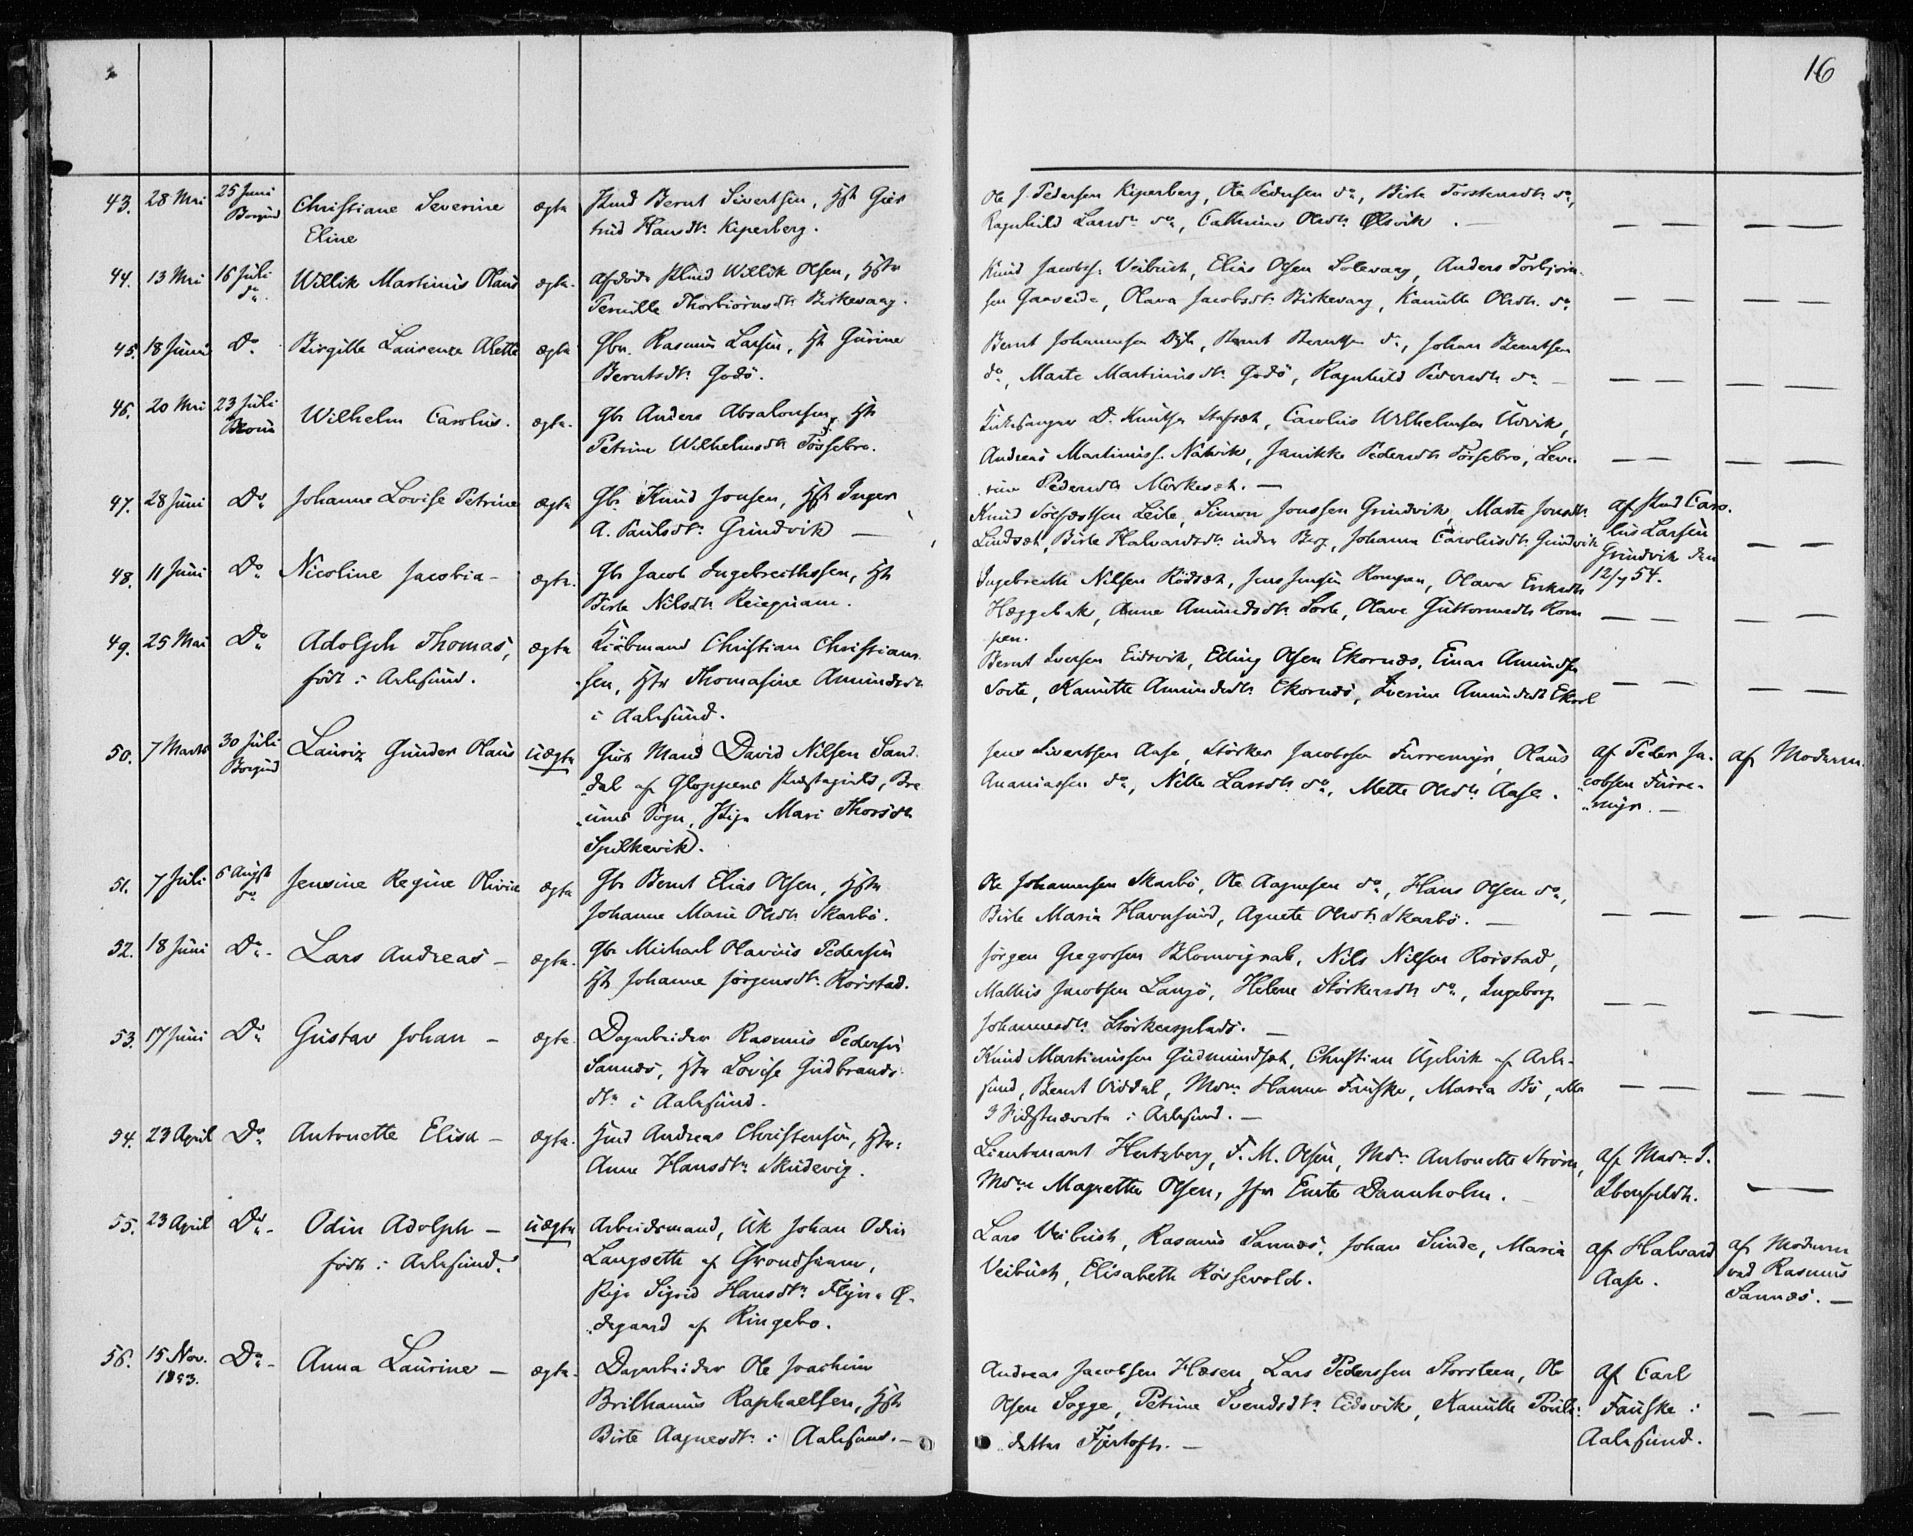 16
43. 28 Mai 25 Juni Borgund Christiane Severine Eline ægte
Hsmd Bernt Sivertsen, Hst Gier
trud Hansdtr Kiperberg.
Ole J. Pedersen Kiperberg, Ole Pedersen do, Birte Torstensdtr do,
Ragnhild Larsdr do, Cathrine Olsdtr Ølsvik.
44. 13 Mai 16 Juli do. Willik Martinus Olaus ægte.
Afdøde Hsmd Willik Olsen, Hstr
Pernille Thorbiørnsdtr Birkevaag.
Knud Jacobs. Veibust, Elias Olsen Solevaag, Anders Torbjørn-
sen Gaaseide, Olava Jacobsdtr Birkevaag, Kanutte Olsdtr. do
45. 18 Juni Do Birgitte Laurenze Alette ægte
Gbr. Rasmus Larsen, Hst Gurine
Berntsdtr Godø.
Bernt Johannesen Dyb, Bernt Berntsen do, Johan Berntsen
do, Marte Martinusdtr Godø, Ragnhild Pedersdtr do
46. 20 Mai 23 Juli Wilhelm Carolus. ægte.
Gbr Anders Absalonsen, Hst
Petrine Wilhelmsdtr Tøssebro.
Kirkesanger D. Knutsen Stafsæt, Carolus Wilhelmsen Ulvik,
Andreas Martinuss. Nalvik, Janikke Pedersdtr Tøssebro, Seve-
rine Pedersdtr Mørkesæt. —
47. 28 Juni Do Johanne Lovise Petrine ægte
Gbr. Knud Jonsen, Hst Inger
A. Paulsdtr. Grindvik —
Knud Leite, Simon Jonssen Grindvik, Marte Jonsdtr.
Lindsæt, Birte Halvardsdtr. indre Berg, Johanna Carolusdtr Grindvik
af Hsmd Caro-
lus Larsen
Grindvik den
12/7 54.
48. 11 Juni Do Nicoline Jacobia — ægte.
Gbr Jacob Ingebrethssen, Hst
Birte Nilsdtr Reiegjnam.
Ingebreth Nilsen Rødsæt, Jens Jensen Rompen, Olava Eriksdtr
Hæggebak, Anne Amundsdtr Sorte, Olave Guttormsdtr Rom
pen.
49. 25 Mai Do Adolph Thomas, ægte
født i Aalesund.
Kiøbmand Christian Christian-
sen, Hstr Thomasine Amundsdtr
i Aalesund.
Bernt Iversen Eidsvik, Elling Olsen Ekornæs, Einar Amundsen
Sorte, Kanutte Amundsdtr Ekornæs, Severine Amundsdtr Ekorn
50. 7 Marts 30 Juli Borgund Lauriz Gunder Olaus uægte
Gift Mand David Nilsen San-
dal af Gloppens Præstegield, Bre
ums Sogn, Pige Mari Thorsdtr
Spilkevik.
Jens Sivertsen Aase, Størker Jacobsen Furremyr, Olaus
Ananiassen do, Nille Larsdtr do, Mette Olsdtr Aase.
af Peder Ja-
cobsen Furre-
myr. —
af Moderen.
51. 7 Juli 6 August do Jensine Regine Olivia ægte
Gbr Bernt Elias Olsen, Hstr
Johanne Marie Olsdtr Skarbø.
Ole Johannesen Skarbø, Ole Aagnesen do, Hans Olsen do,
Birte Maria Havnsund, Agnete Olsdtr Skarbø. —
52. 18 Juni Do. Lars Andreas — ægte.
Gbr Michael Olavius Pedersen
Hst Johanne Jørgensdtr. Rørstad.
Jørgen Gregorsen Blomvignak, Nils Nilsen Rørstad,
Mathis Jacobsen Langø, Helene Størkersdtr do, Ingeborg
Johannesdtr. Størkersplads. —
53. 17 Juni Do Gustav Johan — ægte.
Dagarbeider Rasmus Pedersen
Sannæs, Hstr Lovise Gudbrands-
dtr i Aalesund.
Knud Martinussen Gudmundsæt, Christian Uglvik af Aale-
sund, Bernt Viddal, Mdm Hanna Fauske, Maria Bø, alle
3 Sidstnævnte i Aalesund. —
54. 23 April Do Antonette Elisa — ægte.
Hsmd Andreas Christensen, Hstr:
Anne Hansdtr. Skudevig.
Lieutenant Hertzberg, F. M. Olsen, Mdm Antonette Strøm,
Mdm Magrethe Olsen, Jfr Emte Dannholm.
af Madm J.
Ibenfeldt.
55. 23 April Do Odin Adolph — uægte
født i Aalesund.
Arbeidsmand, UK Johan Odin
Langsette af Throndhjem,
Pige Sigrid Hansdtr. Flyen Ø-
degaard af Ringebo.
Lars Veibust, Rasmus Sannæs, Johan Sunde, Maria
Veibust, Elisabeth Rørsevold.
af Halvard
Aase.
af Moderen
ved Rasmus
Sannæs. —
56. 15 Nov. 1853. Do Anna Laurine — ægte.
Dagarbeider Ole Joachim
Brilhanus Raphaelsen, Hst
Birte Aagnesdtr. i Aalesund. —
Andreas Jacobsen Hæsen, Lars Pederssen Storsteen, Ole
Olsen Sogge, Petrine Svendsdtr Eidsvik, Kanutte Pouls-
datter Fjørtoft. —
af Carl
Fauske i
Aalesund.